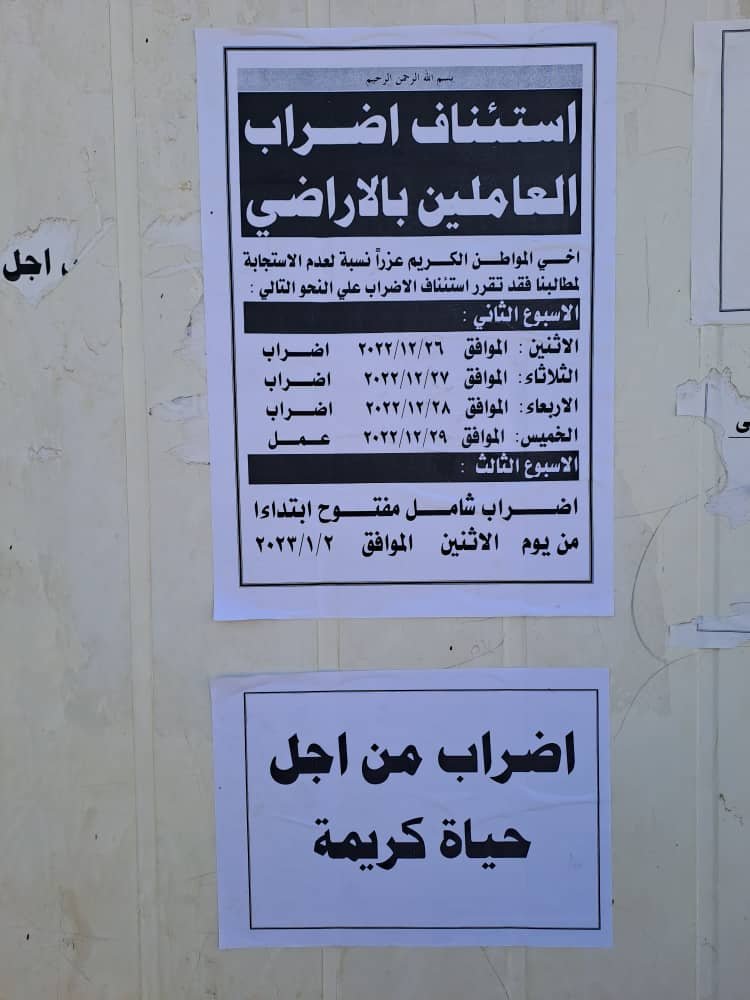 بسم الله الرحمن الرحيم
استئناف اضراب
العاملين بالاراضي
اخي المواطن الكريم عزراً نسبة لعدم الاستجابة
لمطالبنا فقد تقرر استئناف الاضراب علي النحو التالي :
الاسبوع الثاني :
الاثنين : الموافق ٢٠٢٢/١٢/٢٦ اضراب
الثلاثاء: الموافق ٢٠٢٢/١٢/٢٧ اضراب
الاربعاء: الموافق ٢٠٢٢/١٢/٢٨ اضراب
الخميس: الموافق ٢٠٢٢/١٢/٢٩ عمل
الاسبوع الثالث :
اضراب شامل مفتوح ابتداءا
من يوم الاثنين الموافق ٢٠٢٣/١/٢
اضراب من اجل
حياة كريمة
اجل